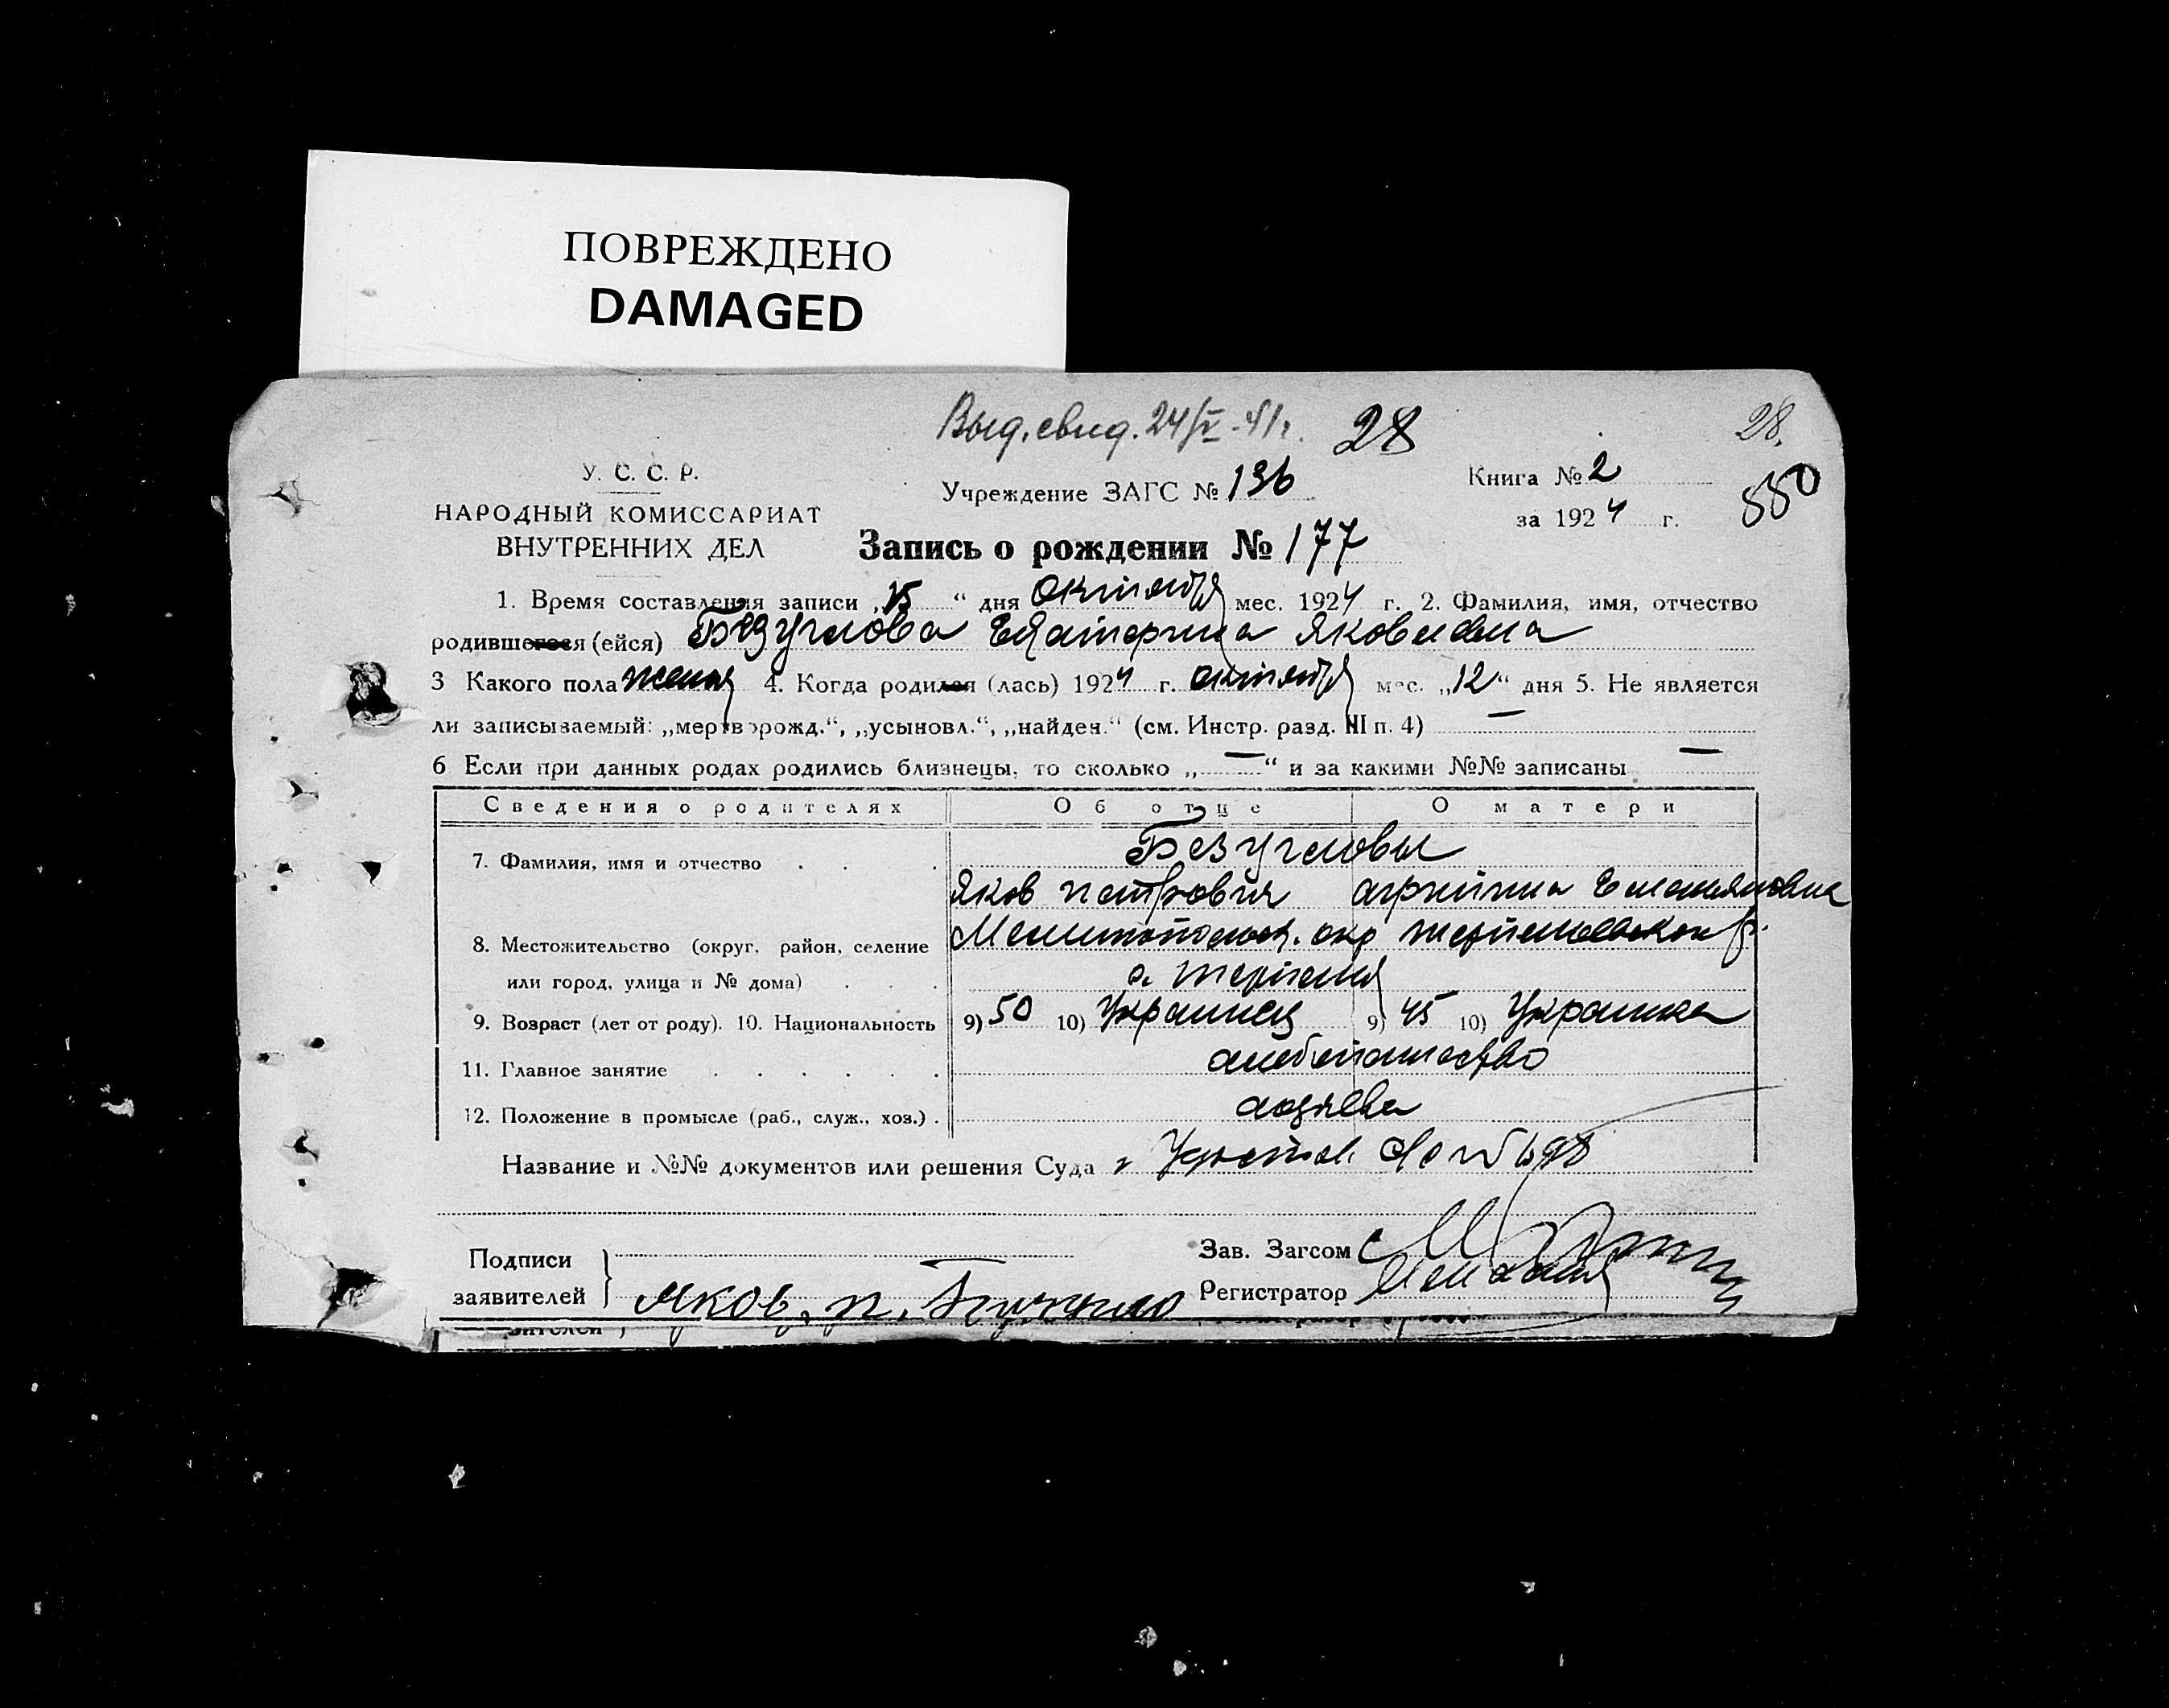 ПОВРЕЖДЕНО
DAMAGED
Выд. свид. 24/V-41г. 28 28.
У. С. С. Р.
Учреждение ЗАГС № 136
Книга № 2
550
НАРОДНЫЙ КОМИССАРИАТ
ВНУТРЕННИХ ДЕЛ
за 1924 г.
Запись о рождении № 177
1. Время составления записи „15“ дня октября мес. 1924 г. 2. Фамилия, имя, отчество
родившегося (ейся) Безуглова Екатерина Яковлевна
3 Какого пола женск 4. Когда родился (лась) 1924 г. октября мес. „12“ дня 5. Не является
ли записываемый: „мертворожд.“, „усыновл.“, „найден.“ (см. Инстр. разд. III п. 4) —
6 Если при данных родах родились близнецы, то сколько „—“ и за какими №№ записаны —
Сведения о родителях Об отце О матери
7. Фамилия, имя и отчество Безугловы
Яков Петрович Агрипина Емельяновна
8. Местожительство (округ, район, селение Мелитопольск. окр
или город, улица и № дома) с. Терпения
9. Возраст (лет от роду). 10. Национальность 9) 50 10) Украинец 9) 45 10) Украинка
11. Главное занятие хлебопашество
12. Положение в промысле (раб., служ., хоз.) хозяева
Название и №№ документов или решения Суда
Подписи
заявителей
Яков. П.
Зав. Загсом
Регистратор